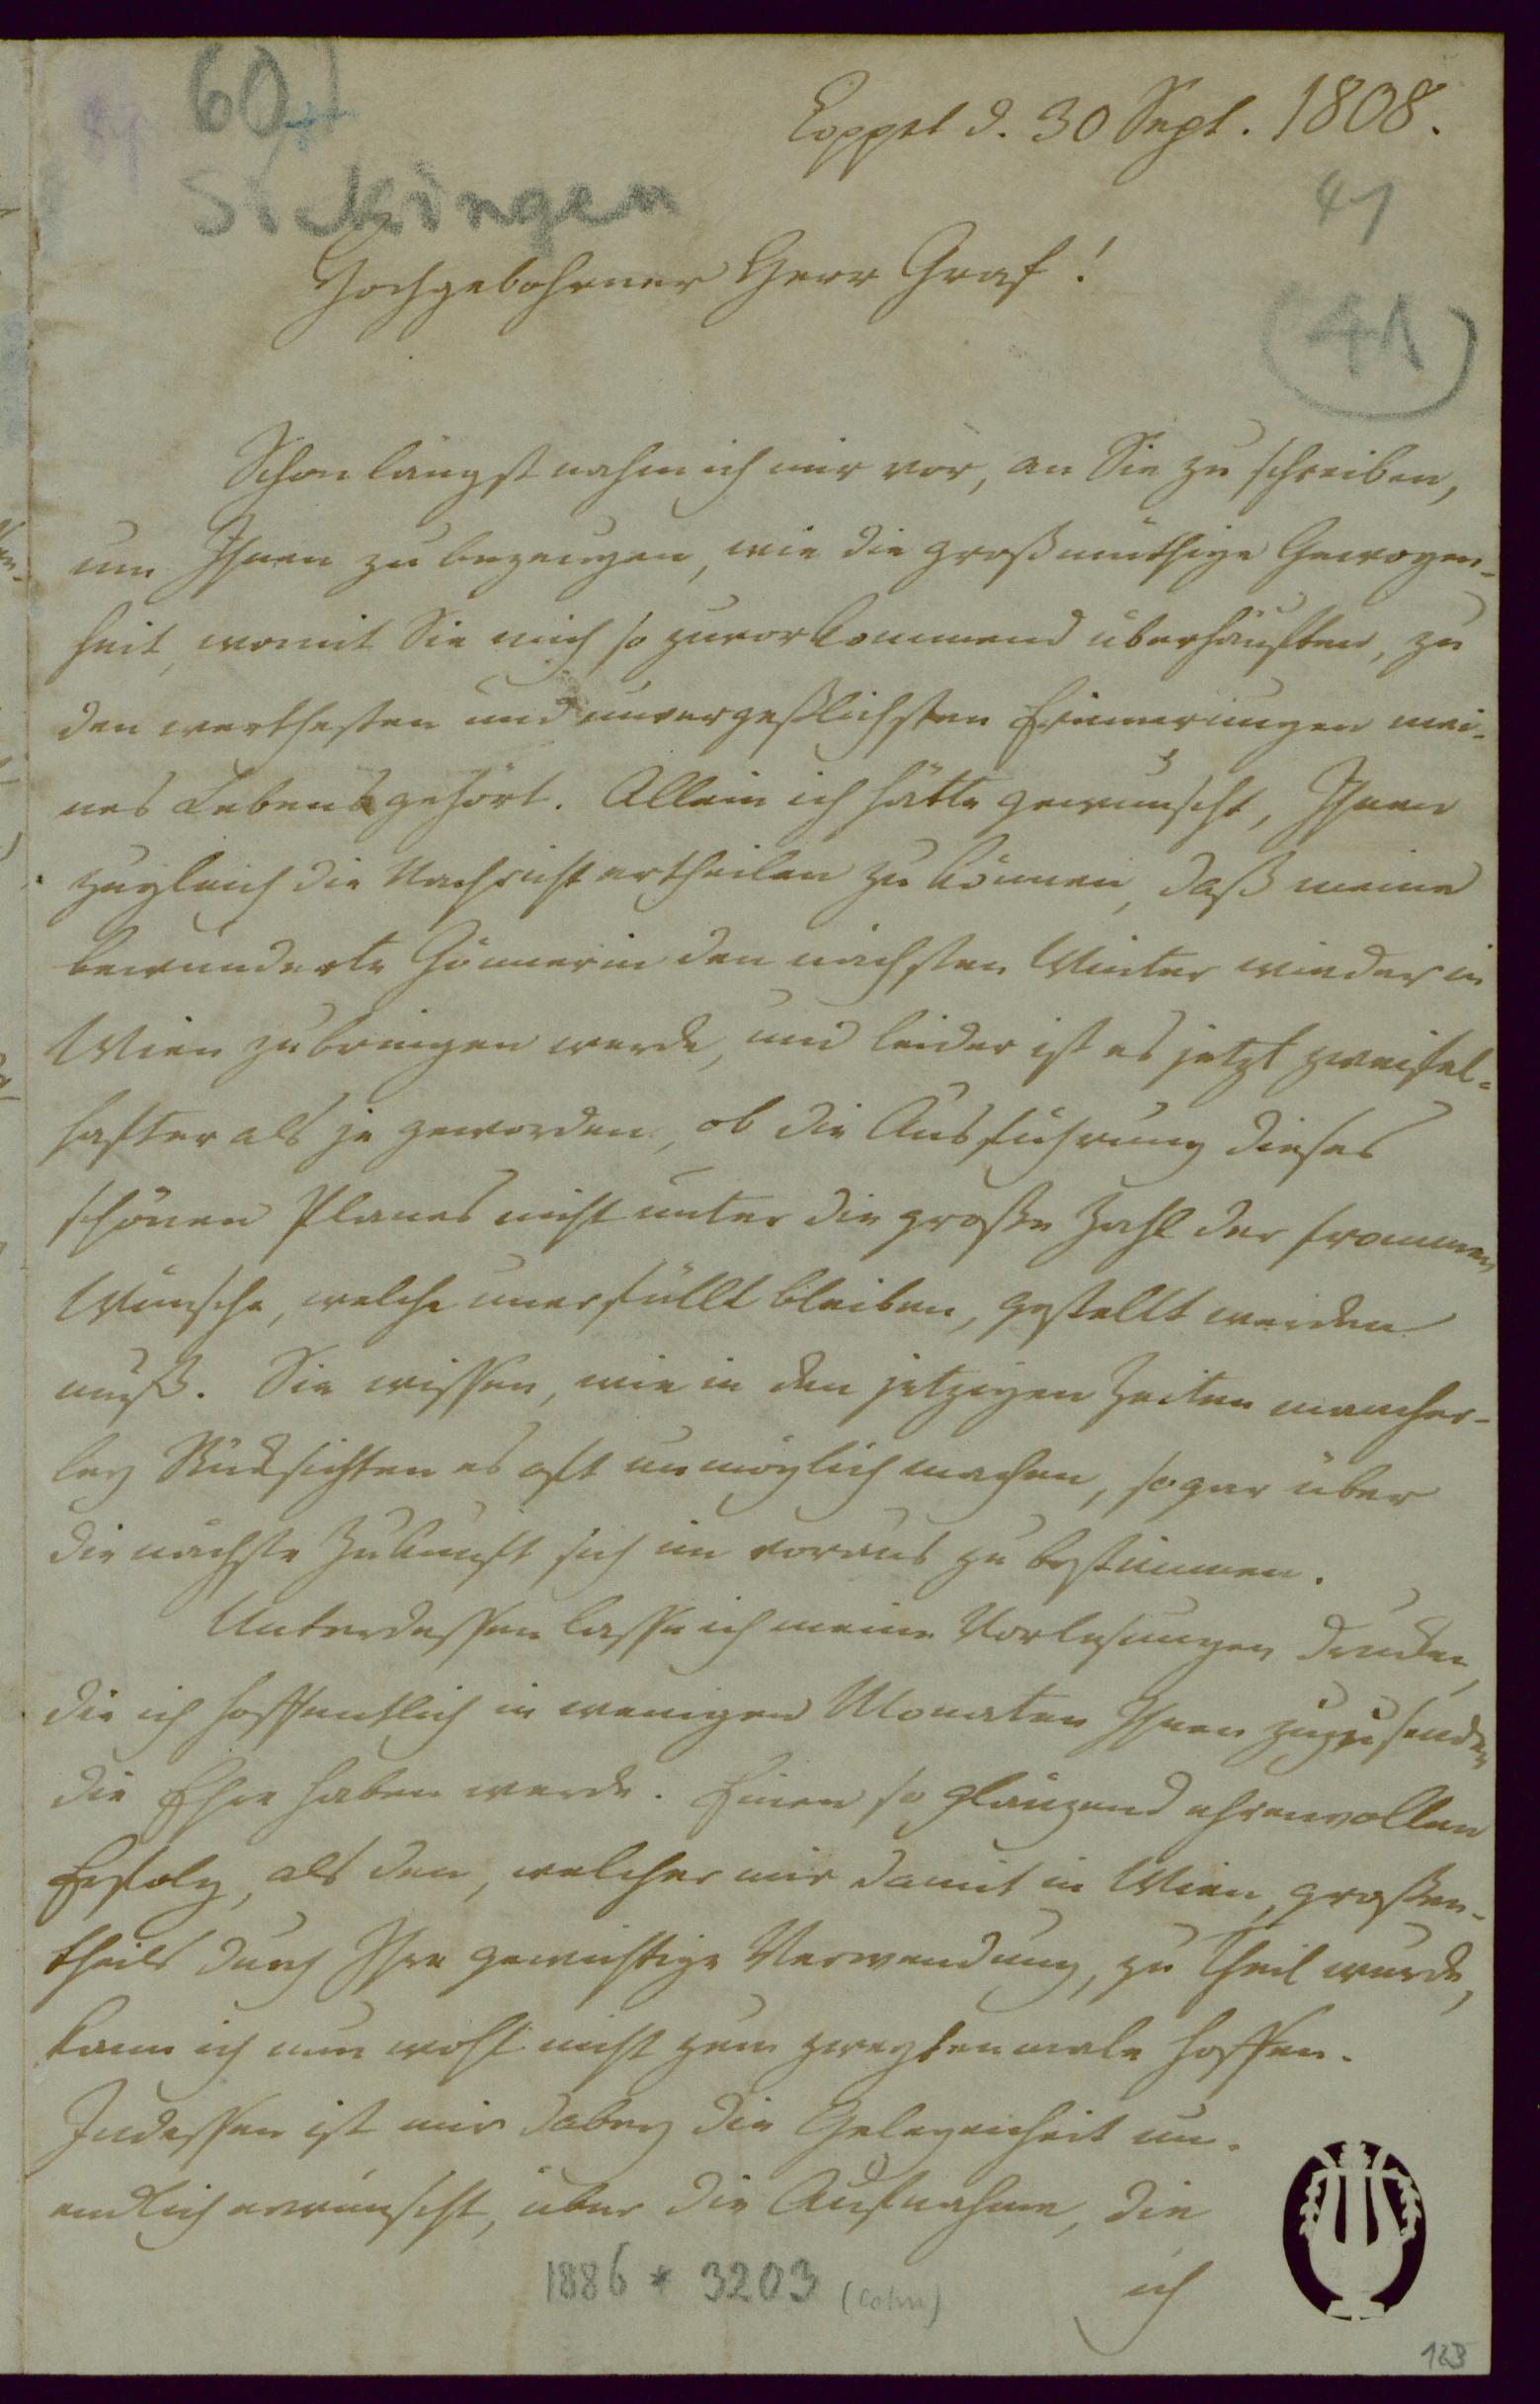 60
Coppet d. 30 Sept. 1808.
Sickingen
41
Hochgebohrner Herr Graf!
(41)
Schon längst nahm ich mir vor, an Sie zu schreiben,
um Ihnen zu bezeugen, wie die großmüthige Gewogen-
heit, womit Sie mich so zuvorkommend überhäuften, zu
den werthesten und unvergeßlichsten Erinnerungen mei-
nes Lebens gehört. Allein ich hätte gewünscht, Ihnen
zugleich die Nachricht ertheilen zu können, daß meine
bewunderte Gönnerin den nächsten Winter wieder in
Wien zubringen werde, und leider ist es jetzt zweifel-
hafter als je geworden, ob die Ausführung dieses
schönen Planes nicht unter die große Zahl der frommen
Wünsche, welche unerfüllt bleiben, gestellt werden
muß. Sie wissen, wie in den jetzigen Zeiten mancher-
ley Rücksichten es oft unmöglich machen, sogar über
die nächste Zukunft sich im voraus zu bestimmen.
Unterdessen lasse ich meine Vorlesungen drucken,
die ich hoffentlich in wenigen Monaten Ihnen zuzusenden
die Ehre haben werde. Einen so glänzend ehrenvollen
Erfolg, als den, welcher mir damit in Wien, großen-
theils durch Ihre gewichtige Verwendung, zu Theil wurde,
kann ich nun wohl nicht zum zweytenmale hoffen.
Indessen ist mir dabey die Gelegenheit un-
endlich erwünscht, über die Aufnahme, die
ich
1886 * 3203 (Cohn)
123